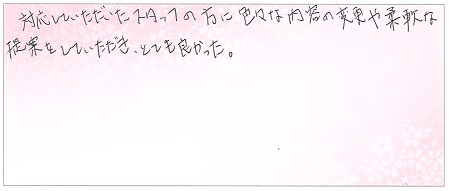 対応していただいたスタッフの方に色々な内容の変更や柔軟な
提案をしていただき、とても良かった。